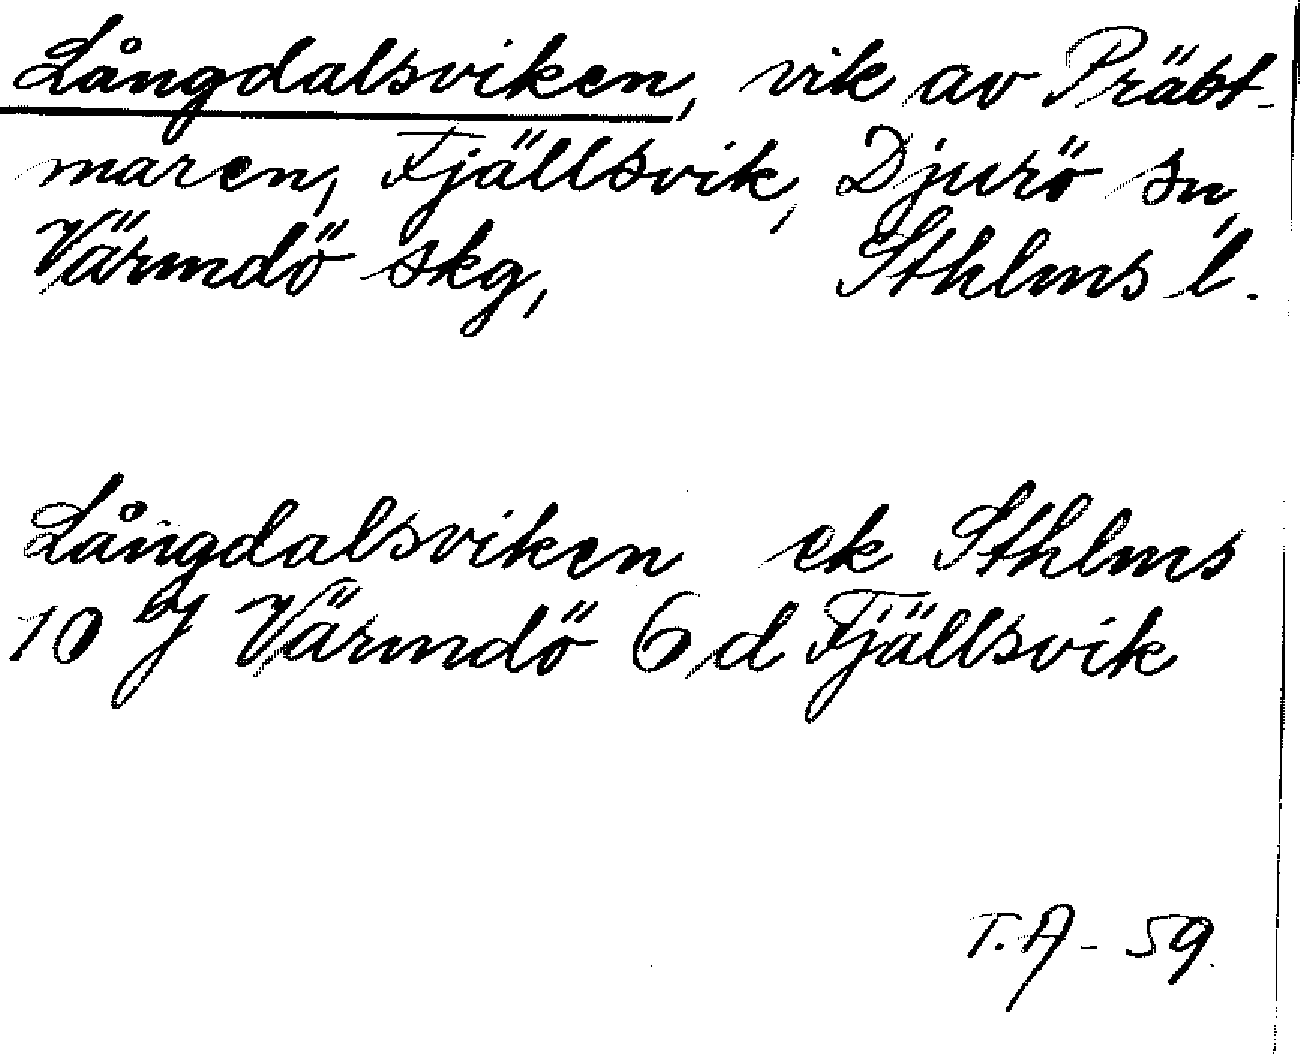 Långdalsviken, vik av Präst-
maren, Fjällsvik, Djurö sn,
Värmdö skg, Sthlms l.
Långdalsviken ek Sthlms
10 bj Värmdö 6 d Fjällsvik
T.A - 59.